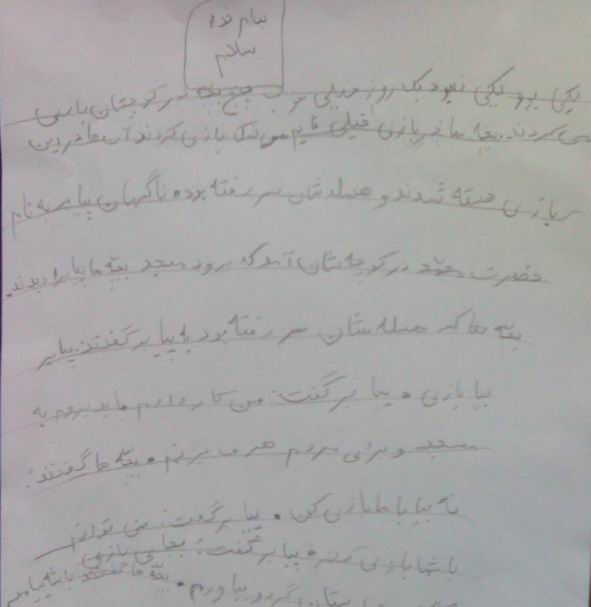 بنام خدا
سلام
یکی بود یکی نبود یک روز خیلی خوب پنج بچه در کوچشان بازی
می کردند. بچه ها در بازی خیلی قایم موشک بازی کردند آن ها در این
بازی خسته شدند و حوصله شان سر رفته بود ناگهان پیامبر به نام
حضرت محمد در کوچه شان آمد که برود مسجد بچه ها پیامبر را دیدند.
بچه ها که حوصله شان سر رفته بود به پیامبر گفتند: پیامبر
بیا بازی. پیامبر گفت: من کار دارم باید بروم به
مسجد و برای مردم حرف بزنم. بچه ها گفتند:
نه بیا با ما بازی کن. پیامبر گفت: نمی توانم
با شما بازی کنم. پیامبر گفت: بجای بازی
گردو بیاورم. بچه ها گفتند باشه پیامبر